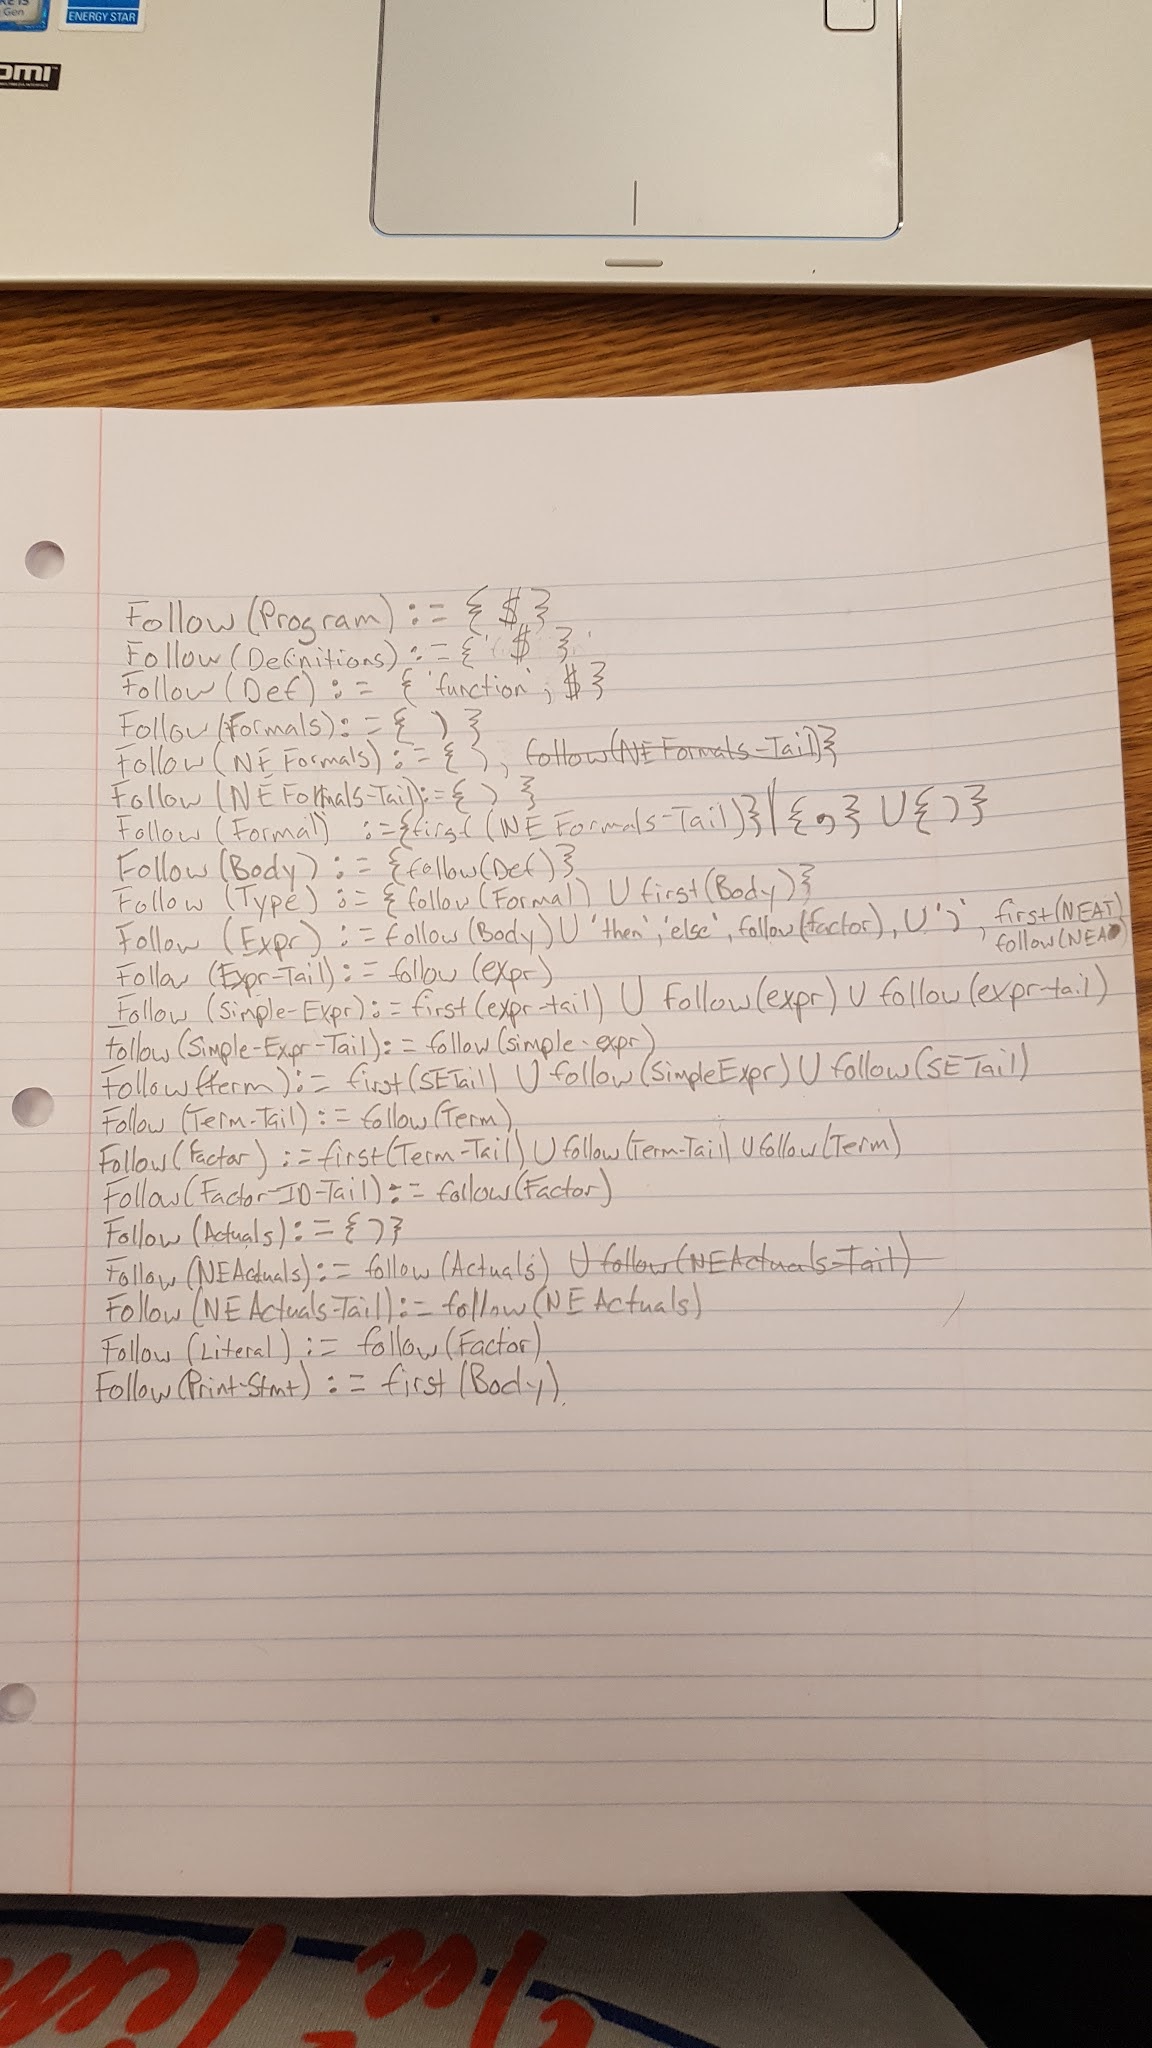 Gen
ENERGY STAR
Follow (Program) := { $ }
Follow (Definitions) := { $ }
Follow (Def) := { 'function', $ }
Follow (Formals) := { ) }
Follow (NE Formals) := { ), follow(NE Formals-Tail)}
Follow (NE Formals-Tail) := { ) }
Follow (Formal) := {first (NE Formals-Tail)} / { , } ∪ { ) }
Follow (Body) := {follow(Def)}
Follow (Type) := { follow (Formal) ∪ first (Body) }
Follow (Expr) := follow (Body) ∪ 'then', 'else', follow (factor), ∪ ')', first (NEAT)
follow (NEA)
Follow (Expr-Tail) := follow (expr)
Follow (Simple-Expr) := first (expr-tail) ∪ follow (expr) ∪ follow (expr-tail)
follow (Simple-Expr-Tail) := follow (simple-expr)
Follow (term) := first (SETail) ∪ follow (SimpleExpr) ∪ follow (SE Tail)
Follow (Term-Tail) := follow (Term)
Follow (Factor) := first (Term-Tail) ∪ follow (Term-Tail) ∪ follow (Term)
Follow (Factor-ID-Tail) := follow (Factor)
Follow (Actuals) := { ) }
Follow (NEActuals) := follow (Actuals) ∪ follow (NEActuals-Tail)
Follow (NE Actuals-Tail) := follow (NE Actuals)
Follow (Literal) := follow (Factor)
Follow (Print-Stmt) := first (Body).